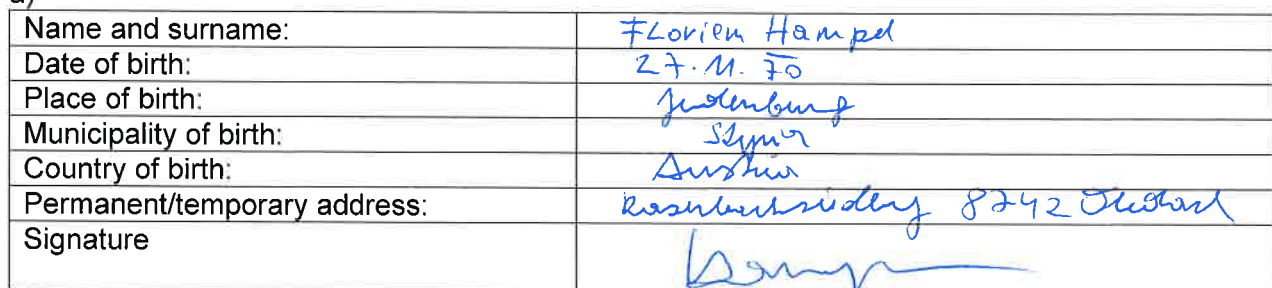 a)
Name and surname: Florien Hampel
Date of birth: 27.11.70
Place of birth: Judenburg
Municipality of birth: Styria
Country of birth: Austria
Permanent/temporary address: 8742
Signature